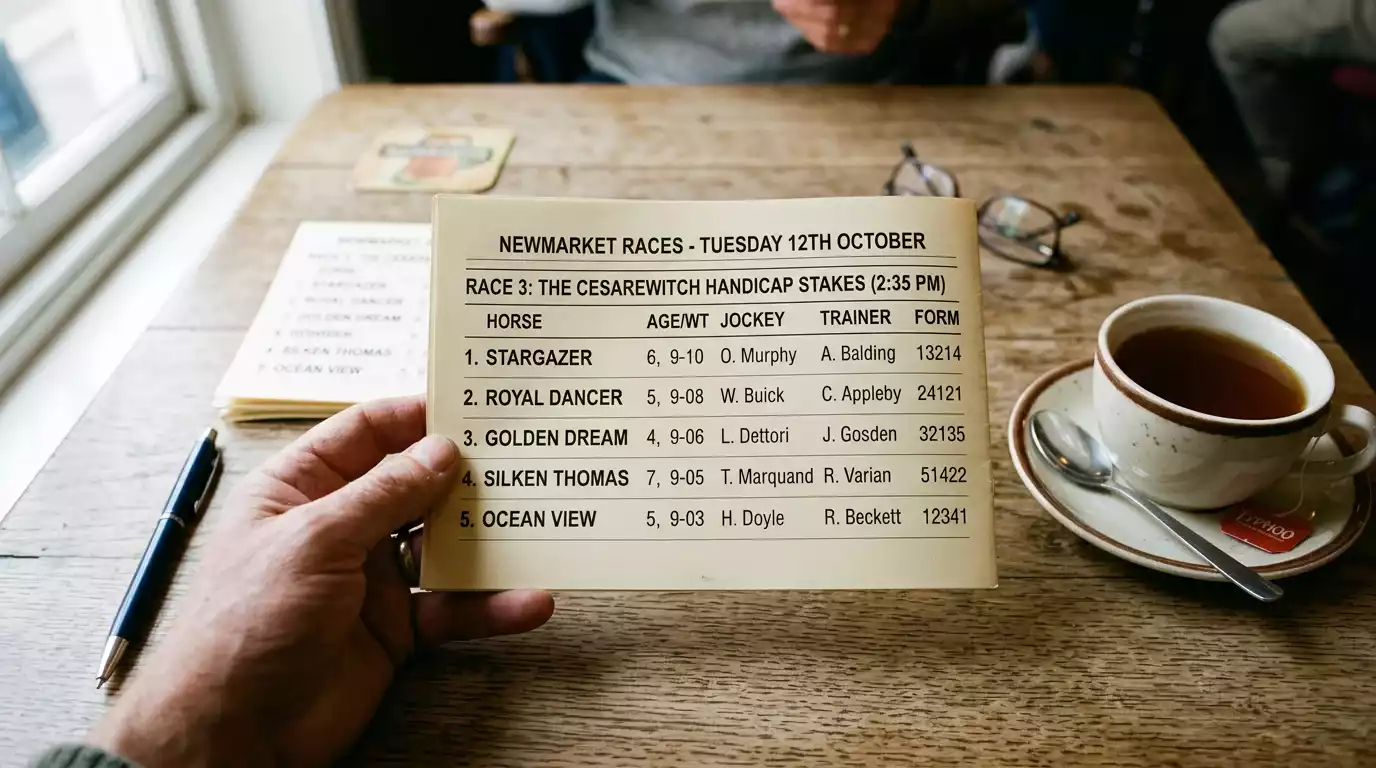 NEWMARKET RACES - TUESDAY 12TH OCTOBER
RACE 3: THE CESAREWITCH HANDICAP STAKES (2:35 PM)
HORSE AGE/WT JOCKEY TRAINER FORM
1. STARGAZER 6, 9-10 O. Murphy A. Balding 13214
2. ROYAL DANCER 5, 9-08 W. Buick C. Appleby 24121
3. GOLDEN DREAM 4, 9-06 L. Dettori J. Gosden 32135
4. SILKEN THOMAS 7, 9-05 T. Marquand R. Varian 51422
5. OCEAN VIEW 5, 9-03 H. Doyle R. Beckett 12341
NEWMARKET
STARGAZER
ROYAL DANCER
GOLDEN DREAM
SILKEN THOMAS
OCEAN VIEW